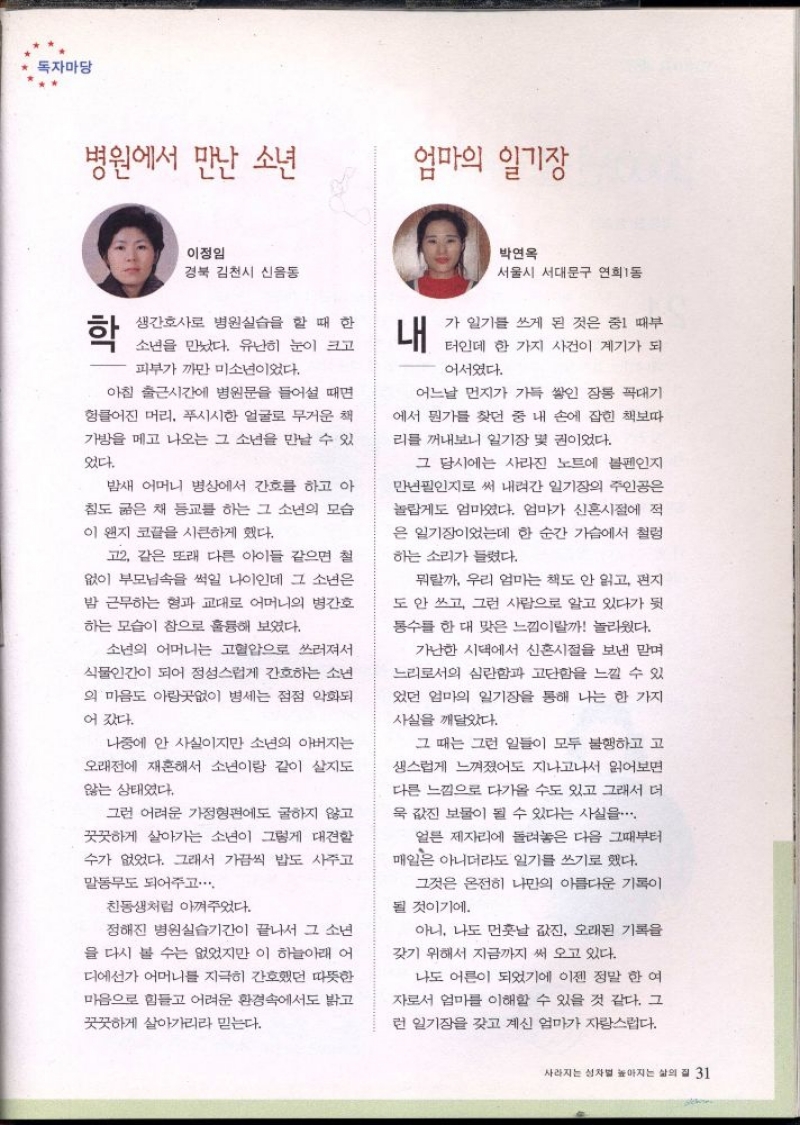 독자마당
병원에서 만난 소년
이정임
경북 김천시 신음동
학 생간호사로 병원실습을 할 때 한
소년을 만났다. 유난히 눈이 크고
피부가 까만 미소년이었다.
아침 출근시간에 병원문을 들어설 때면
헝클어진 머리, 푸시시한 얼굴로 무거운 책
가방을 메고 나오는 그 소년을 만날 수 있
었다.
밤새 어머니 병상에서 간호를 하고 아
침도 굶은 채 등교를 하는 그 소년의 모습
이 왠지 코끝을 시큰하게 했다.
고2, 같은 또래 다른 아이들 같으면 철
없이 부모님속을 썩일 나이인데 그 소년은
밤 근무하는 형과 교대로 어머니의 병간호
하는 모습이 참으로 훌륭해 보였다.
소년의 어머니는 고혈압으로 쓰러져서
식물인간이 되어 정성스럽게 간호하는 소년
의 마음도 아랑곳없이 병세는 점점 악화되
어 갔다.
나중에 안 사실이지만 소년의 아버지는
오래전에 재혼해서 소년이랑 같이 살지도
않는 상태였다.
그런 어려운 가정형편에도 굴하지 않고
꿋꿋하게 살아가는 소년이 그렇게 대견할
수가 없었다. 그래서 가끔씩 밥도 사주고
말동무도 되어주고….
친동생처럼 아껴주었다.
정해진 병원실습기간이 끝나서 그 소년
을 다시 볼 수는 없었지만 이 하늘아래 어
디에선가 어머니를 지극히 간호했던 따뜻한
마음으로 힘들고 어려운 환경속에서도 밝고
꿋꿋하게 살아가리라 믿는다.
엄마의 일기장
박연옥
서울시 서대문구 연희1동
내 가 일기를 쓰게 된 것은 중1 때부
터인데 한 가지 사건이 계기가 되
어서였다.
어느날 먼지가 가득 쌓인 장롱 꼭대기
에서 뭔가를 찾던 중 내 손에 잡힌 책보따
리를 꺼내보니 일기장 몇 권이었다.
그 당시에는 사라진 노트에 볼펜인지
만년필인지로 써 내려간 일기장의 주인공은
놀랍게도 엄마였다. 엄마가 신혼시절에 적
은 일기장이었는데 한 순간 가슴에서 철렁
하는 소리가 들렸다.
뭐랄까, 우리 엄마는 책도 안 읽고, 편지
도 안 쓰고, 그런 사람으로 알고 있다가 뒷
통수를 한 대 맞은 느낌이랄까! 놀라웠다.
가난한 시댁에서 신혼시절을 보낸 맏며
느리로서의 심란함과 고단함을 느낄 수 있
었던 엄마의 일기장을 통해 나는 한 가지
사실을 깨달았다.
그 때는 그런 일들이 모두 불행하고 고
생스럽게 느껴졌어도 지나고나서 읽어보면
다른 느낌으로 다가올 수도 있고 그래서 더
욱 값진 보물이 될 수 있다는 사실을….
얼른 제자리에 돌려놓은 다음 그때부터
매일은 아니더라도 일기를 쓰기로 했다.
그것은 온전히 나만의 아름다운 기록이
될 것이기에.
아니, 나도 먼훗날 값진, 오래된 기록을
갖기 위해서 지금까지 써 오고 있다.
나도 어른이 되었기에 이젠 정말 한 여
자로서 엄마를 이해할 수 있을 것 같다. 그
런 일기장을 갖고 계신 엄마가 자랑스럽다.
사라지는 성차별 높아지는 삶의 질 31